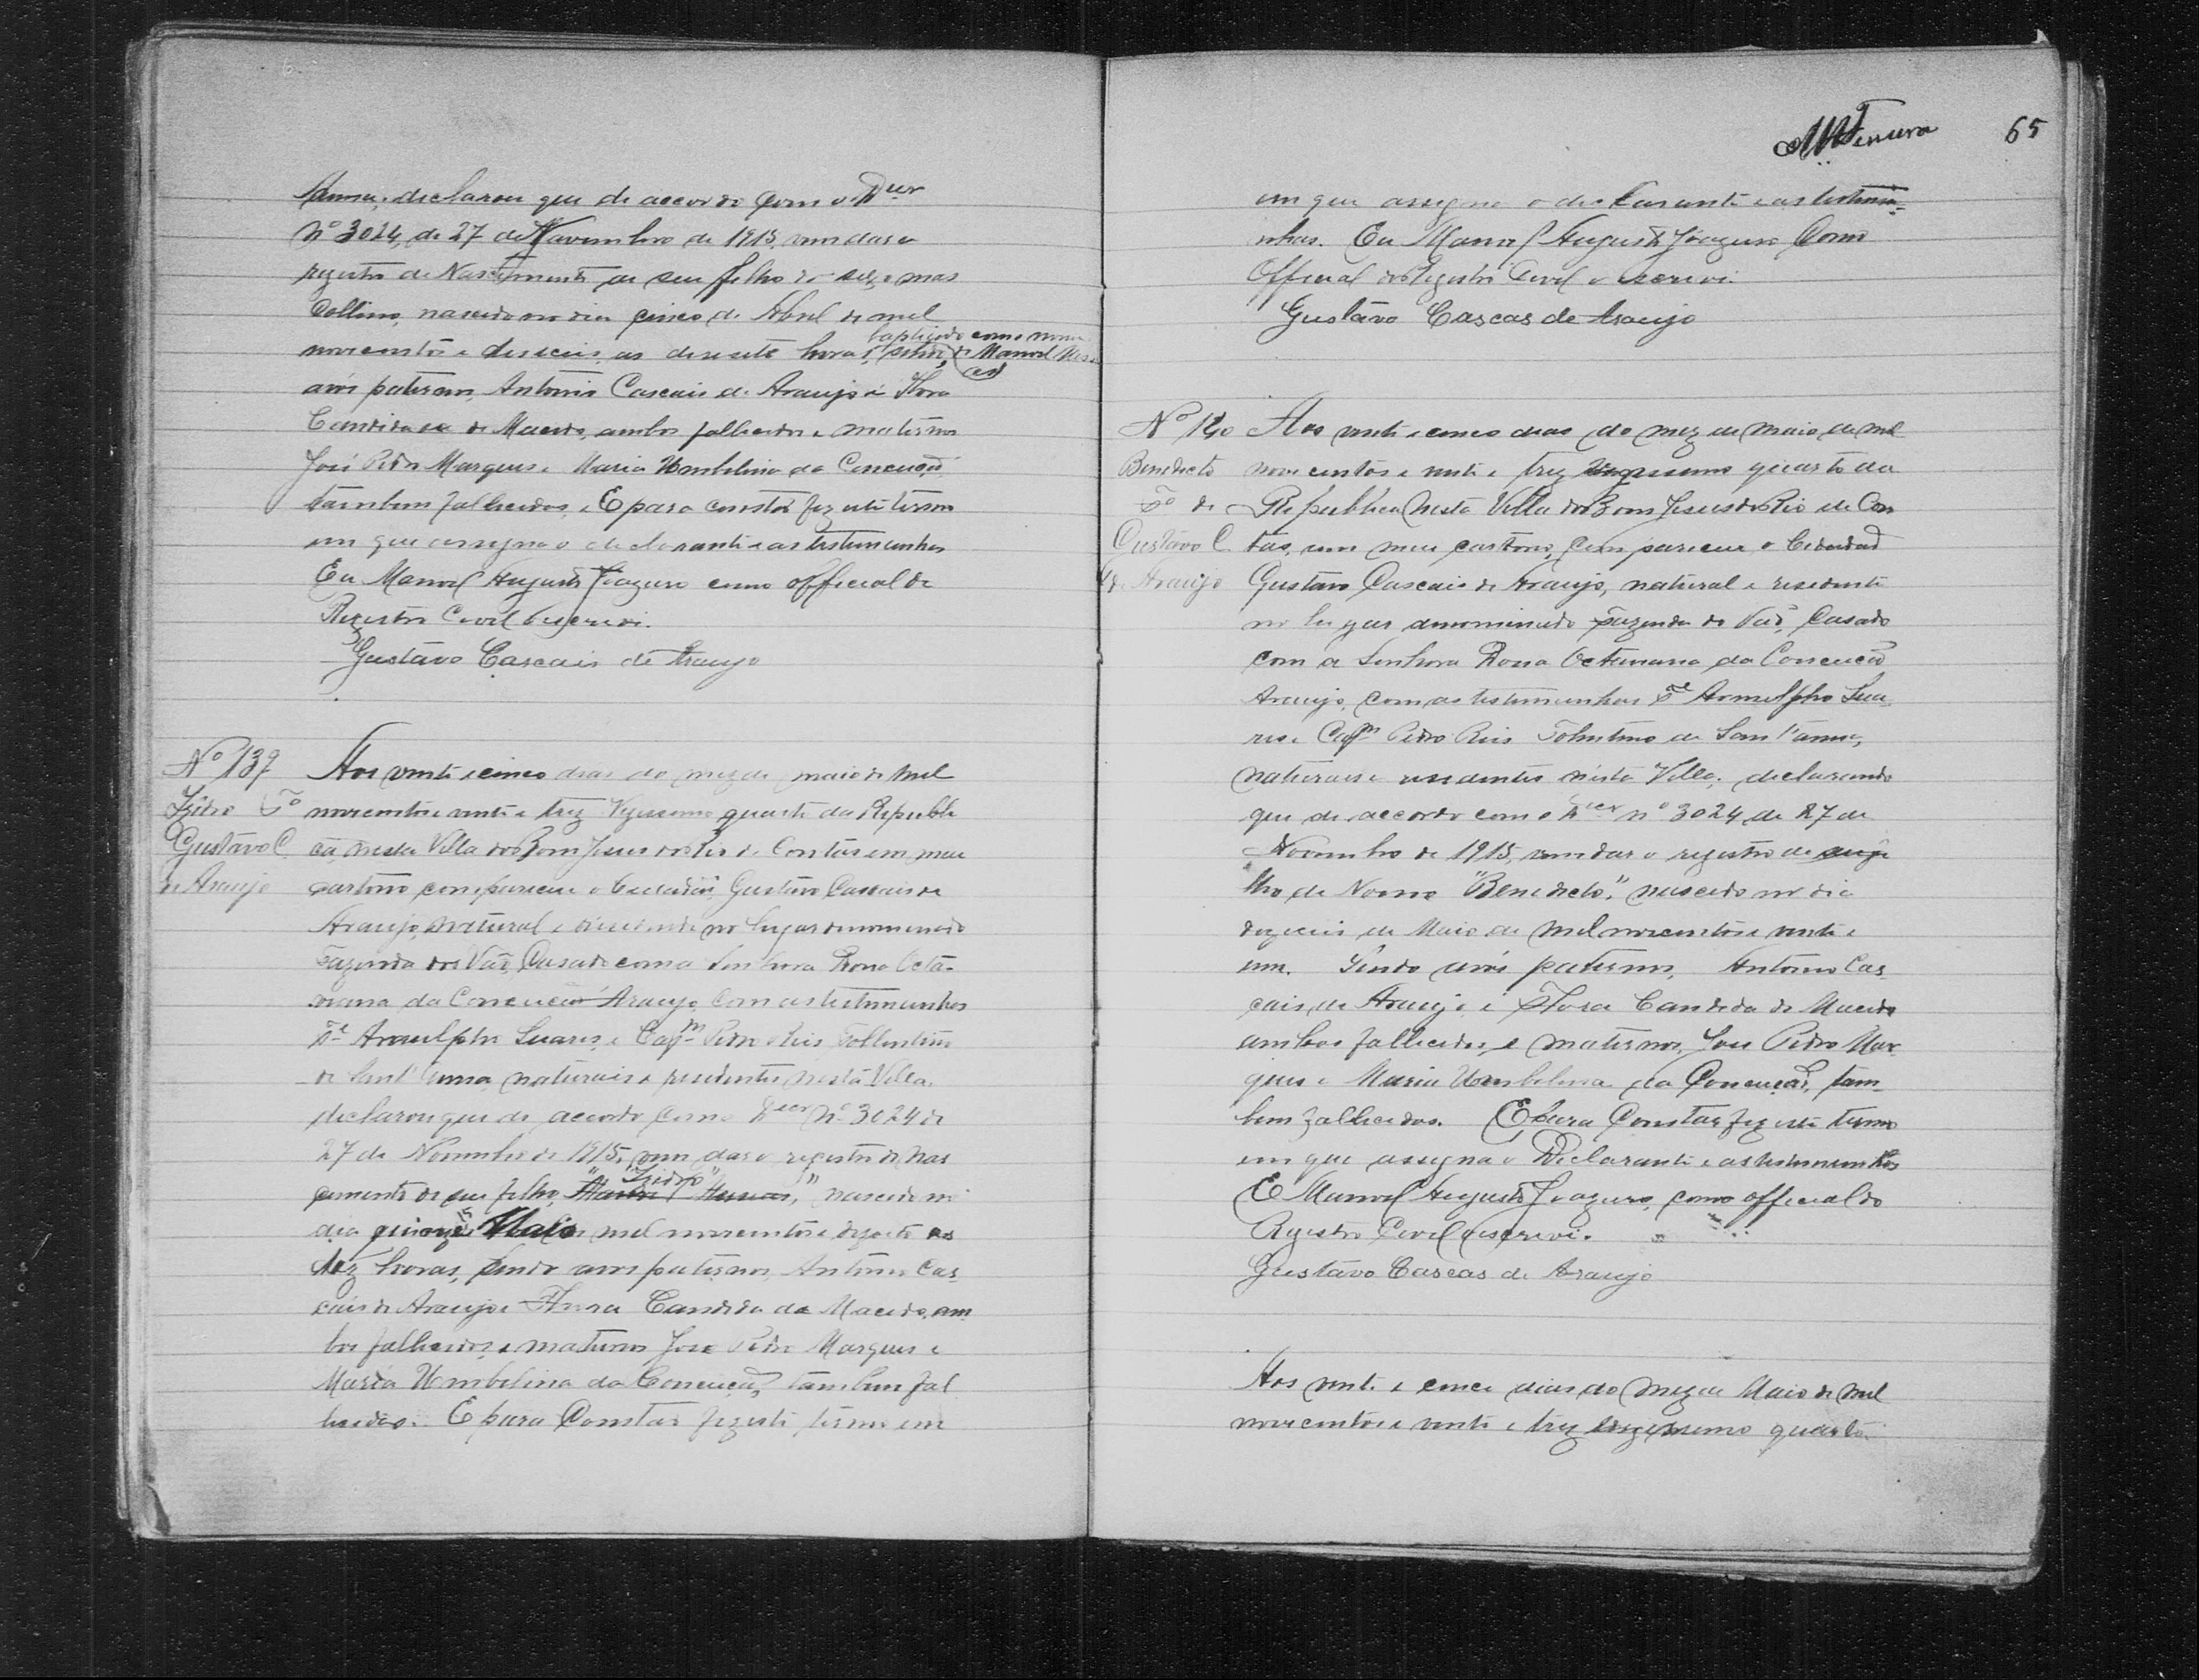 Anna, declarou que de accordo com o Decr
Nº 3024, de 27 de Novembro de 1915, vem dar o
registro de Nascimento ao seu filho do sexo mas
collino, nascido no dia cinco de Abril de mil
baptisado como nome
novecentos e deseseis, as desesete horas, de Manoel
avós paternos, Antonio Cascais de Araujo e Flora
Candida de Macedo, ambos fallecidos e maternos
José Pedro Marques e Maria Umbelina da Conceução
tambem fallecidos. E para constar fez este termo
em que assigna o declarante e as testemunhas
Eu Manoel Augusto Joazeiro como official do
Registro Civil o escrevi.
Gustavo Cascais de Araujo
Nº 139
Izidro Fº
Gustavo C.
de Araujo
Aos vinte e cinco dias do mez de maio de mil
novecentos e vinte e trez Vigessimo quarto da Republi
ca nesta Villa do Bom Jesus do Rio de Contas em meu
cartorio compareceu o Cidadão Gustavo Cascais de
Araujo, natural e residente no lugar denominado
Fazenda do Vão, Casado com a Senhora Dona Octa-
viana da Conceução Araujo, com as testemunhas
Arnulpho Suares, e Capm Pedro Reis Tollentino
de Sant'Anna, naturais e residentes nesta Villa.
declarou que de accordo com o Decr Nº 3024 de
27 de Novembro de 1915, vem dar o registro de nas
"Izidro"
cimento de seu filho, nascido no
dia quinze de Maio de mil novecentos e dezoito as
dez horas, sendo avos paternos, Antonio Cas
cais de Araujo e Flora Candida de Macedo, am
bos fallecidos, e maternos José Pedro Marques e
Maria Umbelina da Conceução, tambem fal
lecidos. E para Constar fez este termo em
MFerreira 65
em que assigna o declarante e as testemu-
nhas. Eu Manoel Augusto Joazeiro Como
Official do Registro Civil o escrevi.
Gustavo Cascas de Araujo
Nº 140
Benedicto
Fº de
Gustavo C.
de Araujo
Aos vinte e cinco dias do mez de maio de mil
novecentos e vinte e trez vigessimo quarto da
Republica nesta Villa do Bom Jesus do Rio de Con
tas, em meu cartorio, compareceu o Cidadão
Gustavo Cascais de Araujo, natural e residente
no lugar denominado Fazenda do Vão, Casado
com a Senhora Dona Octaviana da Conceução
Araujo, com as testemunhas Arnulpho Sua
res e Capm Pedro Reis Tolentino de Sant'anna,
naturaes e residentes nesta Villa, declarando
que de accordo com o Decr nº 3024 de 27 de
Novembro de 1915, vem dar o registro de seu fi
lho de Nome "Benedicto", nascido no dia
dezeceis de Maio de mil novecentos e vinte e
um. Sendo avós paternos, Antonio Cas
cais de Araujo e Flora Candida de Macedo
ambos fallecidos, e maternos, José Pedro Mar
ques e Maria Umbelina da Conceução, tam-
bem fallecidos. E para Constar fez este termo
em que assigna o Declarante e as testemunhas
E Manoel Augusto Joazeiro, como official do
Registro Civil o escrevi.
Gustavo Cascas de Araujo
Aos vinte e cinco dias do mez de Maio de mil
novecentos e vinte e trez vigessimo quarto